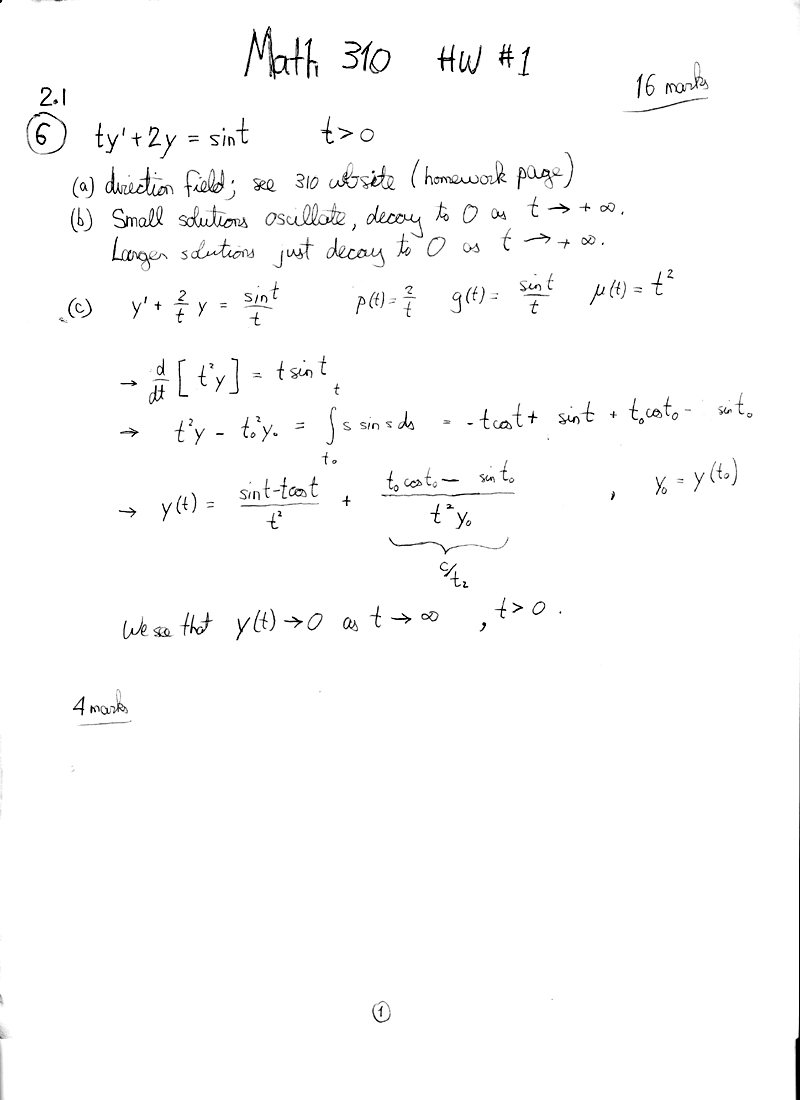 Math 310 HW #1
16 marks
2.1
⑥ ty' + 2y = sint t > 0
(a) direction field; see 310 website (homework page)
(b) Small solutions oscillate, decay to 0 as t → +∞.
Larger solutions just decay to 0 as t → +∞.
(c) y' + 2/t y = sint/t p(t) = 2/t g(t) = sint/t μ(t) = t²
→ d/dt [t²y] = t sint
→ t²y - t₀²y₀ = ∫_{t₀}^{t} s sin s ds = -tcost + sint + t₀cost₀ - sint₀
→ y(t) = (sint - tcost)/t² + (t₀cost₀ - sint₀)/(t²y₀) , y₀ = y(t₀)
c/t₂
We see that y(t) → 0 as t → ∞ , t > 0 .
4 marks
①